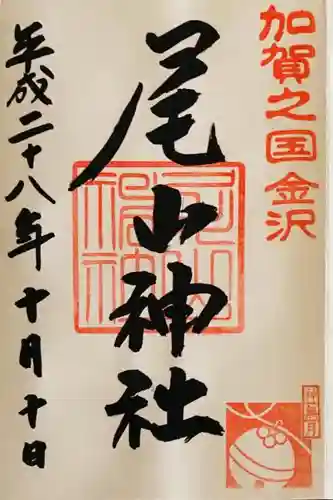 加賀之国金沢
尾山神社
平成二十八年十月十日